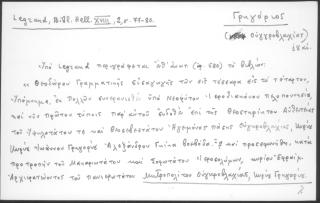 Legrand, Β.Β. Hell. XVIII, 2, σ. 77-80.
Γρηγόριος
Οὑγγροβλαχίας
Ὑπὸ Legrand περιγράφεται (ἀρ. 580) τὸ Βιβλίον:
« Θεοδώρου Γραμματικῆς εἰσαγωγῆς τῶν εἰς τέσσαρα εἰς τὸ τέταρτον,
Ὑπόμνημα, ἐκ Πολλῶν ὑπὸ Νεοφύτου Ἱεροδιακόνου Πελοποννησίου,
καὶ νῦν πρῶτον τύποις παρ' αὐτοῦ ἐκδοθὲν ἐπὶ τῆς Θεοστηρίκτου Αὐθεντείας
τοῦ Ὑψηλοτάτου τε καὶ Θεοσεβεστάτου Ἡγεμόνος πάσης Οὑγγροβλαχίας, Κυρίου
Κυρίου Ἰωάννου Γρηγορίου Ἀλεξάνδρου Γκίκα Βοεβόδα. καὶ προσεφωνήθη, κατὰ
προτροπὴν τοῦ Μακαριωτάτου καὶ Σοφωτάτου Ἱεροσολύμων, κυρίου Ἐφραίμ.
Ἀρχιερατεύοντος τοῦ πανιερωτάτου Μητροπολίτου Οὑγγροβλαχίας, Κυρίου Γρηγορίου.